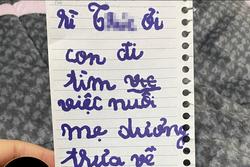 rì ơi
con đi
tìm vịc
việc nuôi
mẹ dương
trưa về